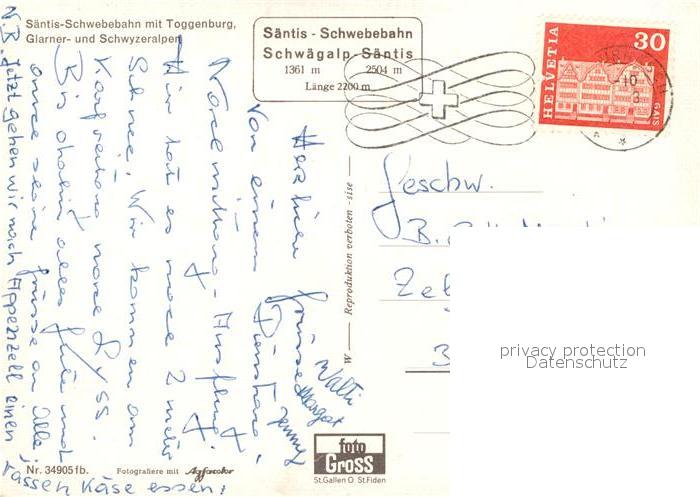 Säntis-Schwebebahn mit Toggenburg,
Glarner- und Schwyzeralpen
Säntis - Schwebebahn
Schwägalp - Säntis
1361 m 2504 m
Länge 2200 m
HELVETIA
30
GAIS
Herzliche Grüsse
Von einem Dienstag
Nachmittag-Ausflug!
Hier hat es noch 2 meter
Schnee. Wir kommen am
nach Lyss.
Bis dahin alles Gute und
Grüsse an Alle!
Walti
Margot
Jenny
N.B. Jetzt gehen wir nach Appenzell einen
rassen Käse essen!
Geschw.
B.
W — Reproduktion verboten - sise —
privacy protection
Datenschutz
foto
Gross
St.Gallen O St.Fiden
Nr. 34905 fb. Fotografiere mit Agfacolor